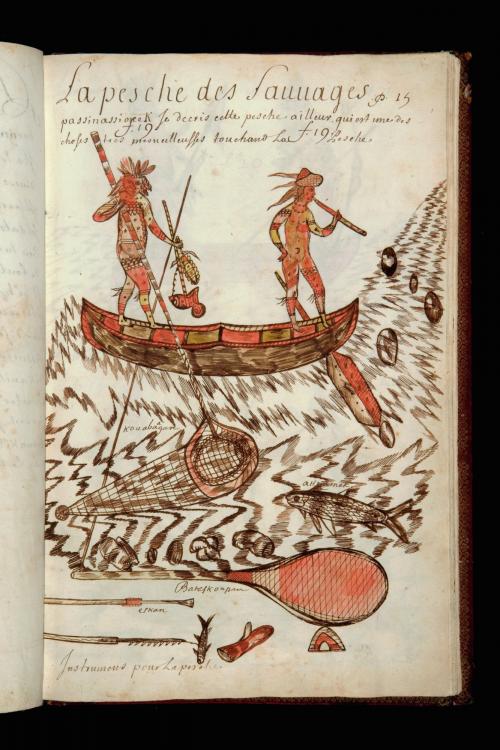 La pesche des Sauvages p. 15
passinassioüek Je decris cette pesche ailleur, qui est une des
f. 19
choses tres merveilleusses touchand La f 19 Pesche.
Kouabagan
attikamec
Bateskonpan
eskan
Instrumens pour La pesche